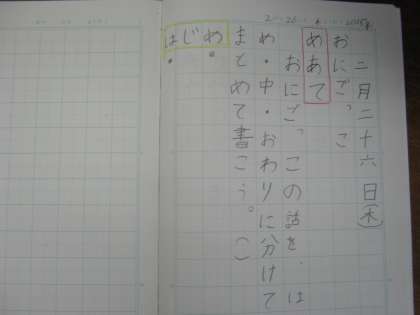 二月二十六日(木)
おにごっこ
めあて
おにごっこの話を、は
め・中・おわりに分けて
まとめて書こう。
はじめ